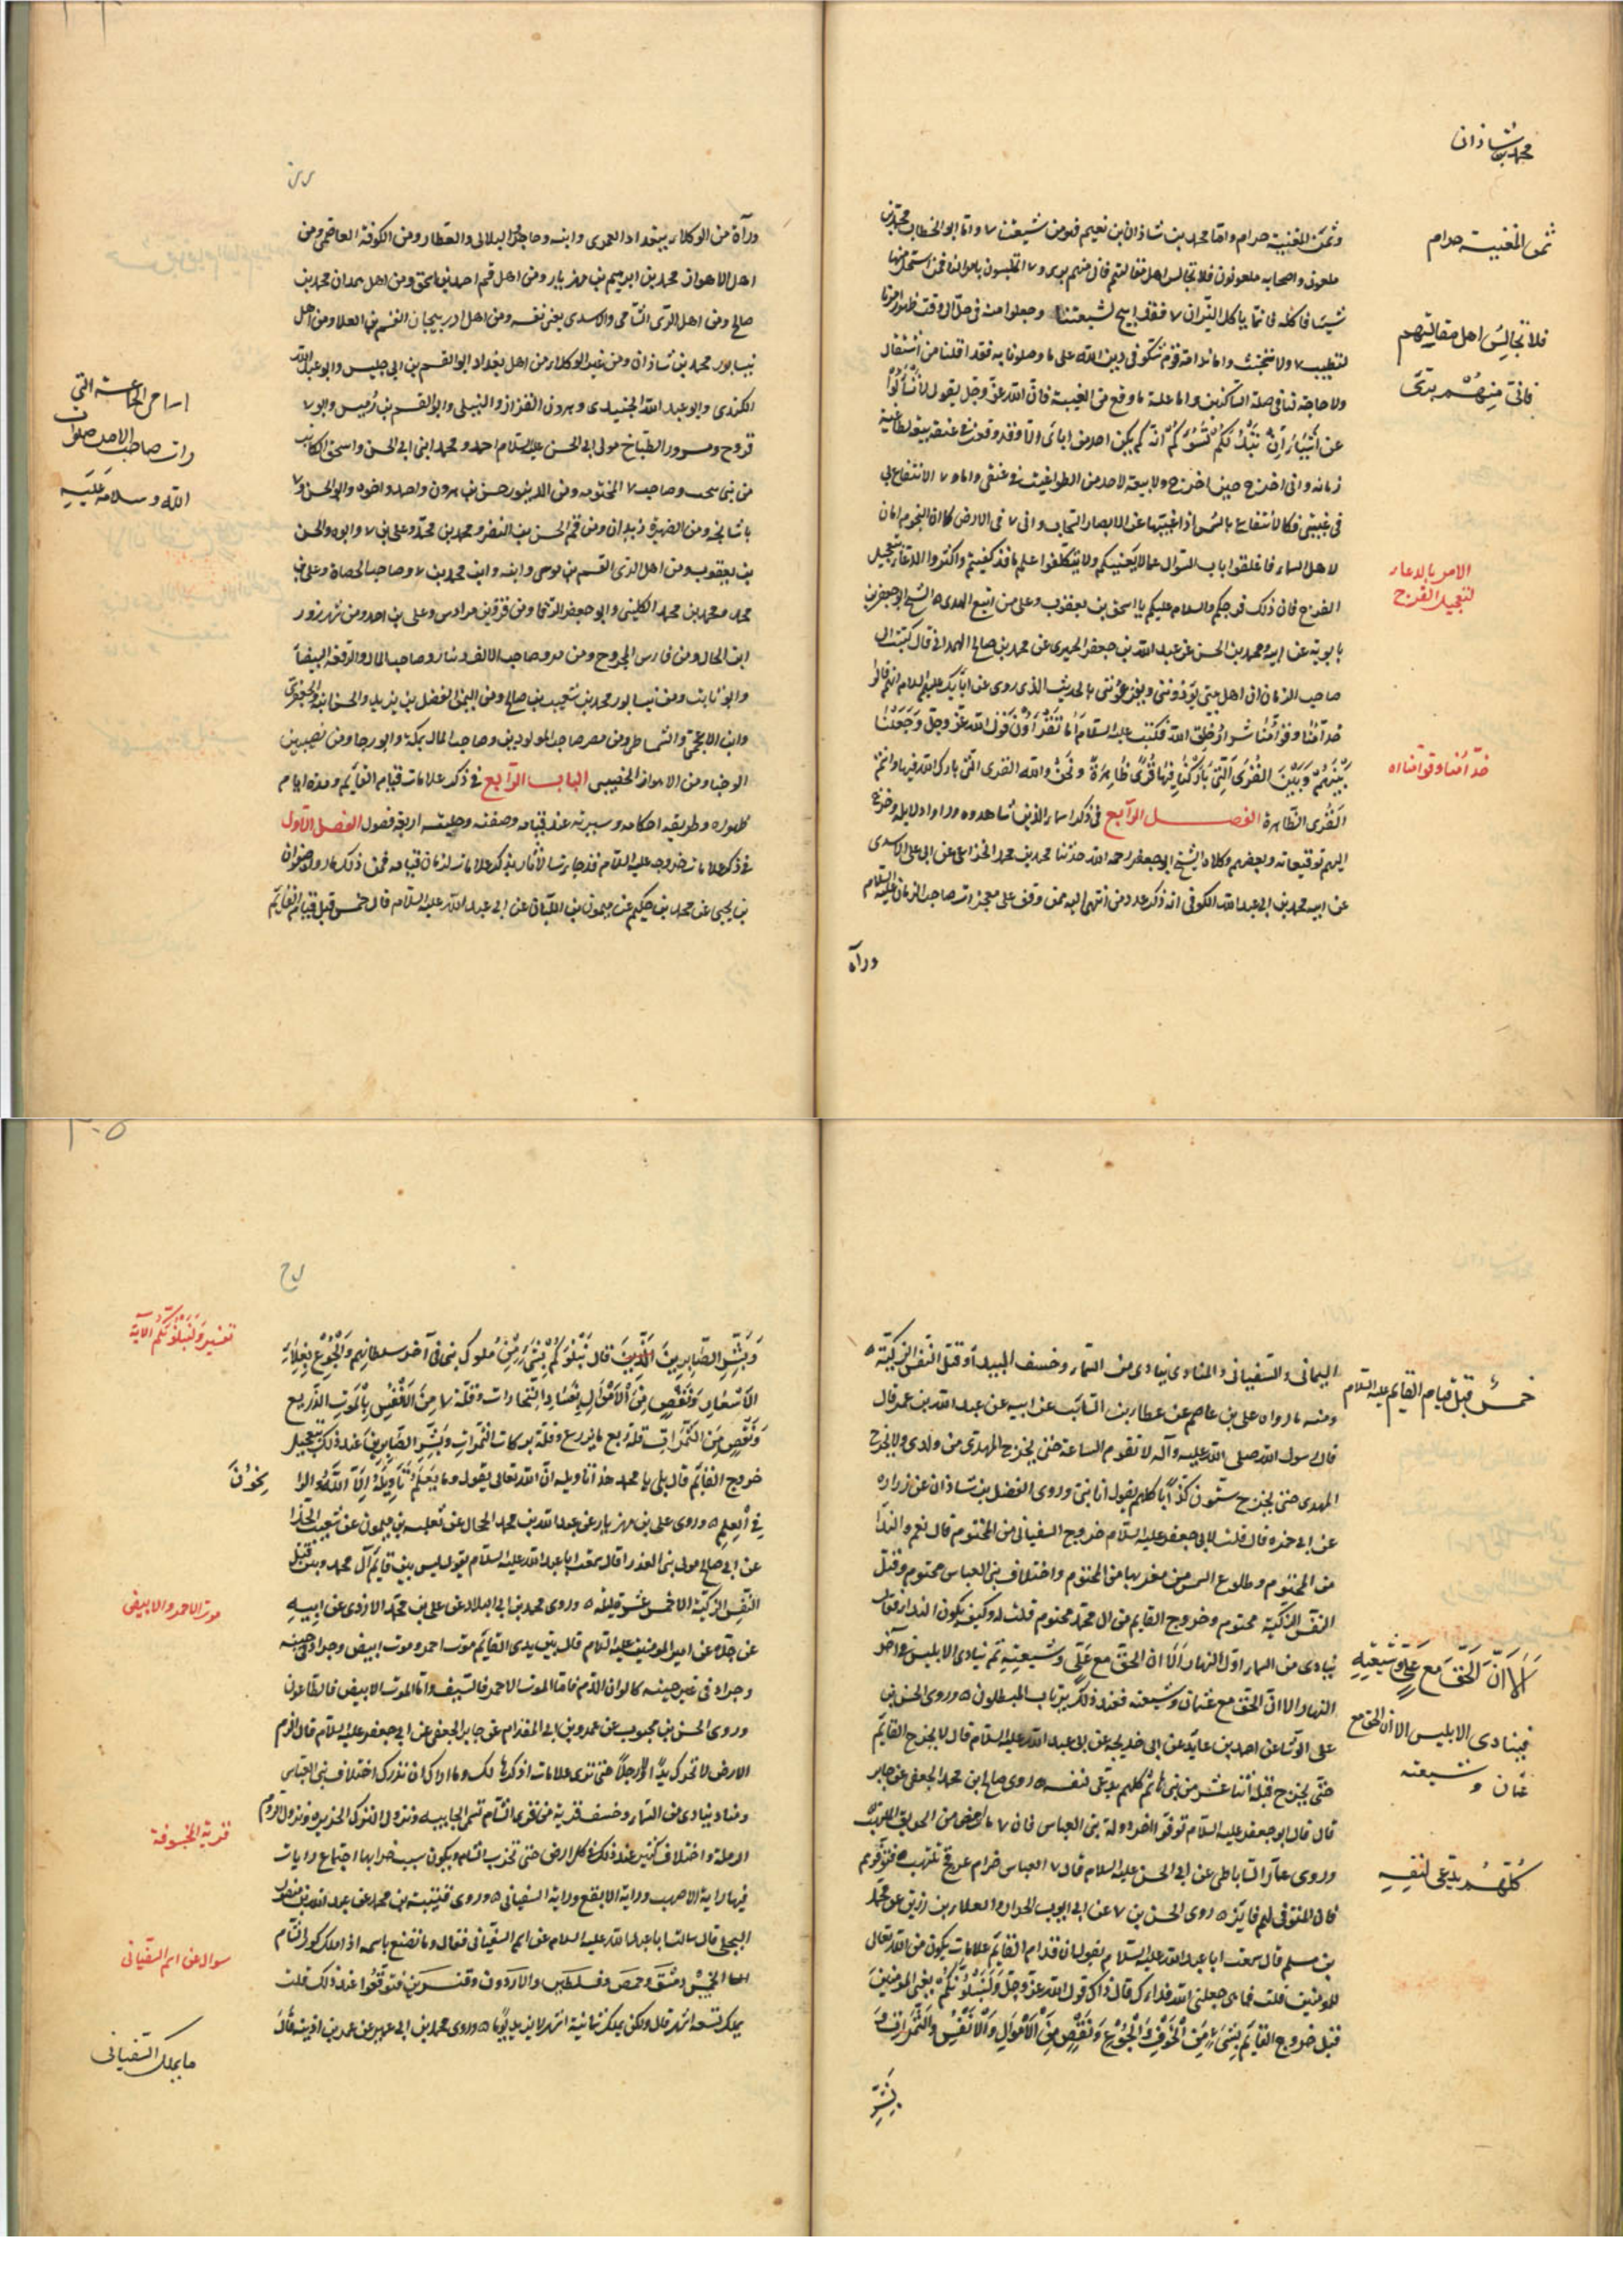 محمد بن شاذان
ثمن المغنية حرام
فلا تجالس اهل مقالتهم
فانى منهم برئ
الامر بالدعاء
لتعجيل الفرج
خدّامنا وقوّامنا اه
وثمن المغنية حرام واما محمد بن شاذان بن نعيم فهو من شيعتنا واما ابو الخطاب محمد بن
ملعون واصحابه ملعونون فلا تجالس اهل مقالتهم فانى منهم برئ و المتلبسون باموالنا فمن استحل منها
شيئا فاكله فانما ياكل النيران فقد ابيح لشيعتنا وجعلوا منه فى حل الى وقت ظهور امرنا
لتطيب ولادتهم ولا تخبث واما ندامة قوم شكوا فى دين الله على ما وصلونا به فقد اقلنا من استقال
ولا حاجة لنا فى صلة الشاكين واما علة ما وقع من الغيبة فان الله عز وجل يقول لا تسألوا
عن اشياء ان تبد لكم تسؤكم انه لم يكن احد من ابائى الا وقد وقعت فى عنقه بيعة لطاغية
زمانه وانى اخرج حين اخرج ولا بيعة لاحد من الطواغيت فى عنقى واما الانتفاع بى
فى غيبتى فكالانتفاع بالشمس اذا غيبتها عن الابصار السحاب وانى فى الارض كما ان النجوم امان
لاهل السماء فاغلقوا باب السؤال عما لا يعنيكم ولا تتكلفوا علم ما قد كفيتم واكثروا الدعاء بتعجيل
الفرج فان ذلك فرجكم والسلام عليكم يا اسحق بن يعقوب وعلى من اتبع الهدى الشيخ ابو جعفر بن
بابويه عن ابيه ومحمد بن الحسن عن عبد الله بن جعفر الحميرى عن محمد بن صالح الهمدانى قال كتبت الى
صاحب الزمان ان اهل بيتى يؤذوننى ويقرعوننى بالحديث الذى روى عن آبائك عليهم السلام انهم قالوا
خدّامنا وقوّامنا شرار خلق الله فكتب عليه السلام اما تقرأون قول الله عز وجل وجعلنا
بينهم وبين القرى التى باركنا فيها قرى ظاهرة ونحن والله القرى التى بارك الله فيها وانتم
القرى الظاهرة الفصل الرابع فى ذكر اسماء الذين شاهدوه وراوا دلايله وخرج
اليهم توقيعاته وبعضهم وكلاه الشيخ ابو جعفر رحمه الله حدثنا محمد بن محمد الخزاعى عن ابى على الاسدى
عن ابيه محمد بن ابى عبد الله الكوفى انه ذكر عدد من انتهى اليه ممن وقف على معجزات صاحب الزمان عليه السلام
ورآه
ورآه من الوكلاء ببغداد العمرى وابنه وحاجز والبلالى والعطار ومن الكوفة العاصمى ومن
اهل الاهواز محمد بن ابرهيم بن مهزيار ومن اهل قم احمد بن اسحق ومن اهل همدان محمد بن
صالح ومن اهل الرى الشامى والاسدى يعنى نفسه ومن اهل اذربيجان القسم بن العلا ومن اهل
نيسابور محمد بن شاذان ومن غير الوكلاء من اهل بغداد ابو القسم بن ابى حليس وابو عبد الله
الكندى وابو عبد الله الجنيدى وهرون القزاز والنيلى وابو القسم بن دبيس وابو
فروخ ومسرور الطباخ مولى ابى الحسن عليه السلام احمد ومحمد ابنى ابى الحسن واسحق الكاتب
من بنى وصاحب المختومة ومن الدينور حسن بن هرون واحمد واخوه وابو الحسن و
باشاله ومن الصيمرة زيدان ومن قم الحسن بن النضر ومحمد بن محمد وعلى بن وابوه والحسن
بن يعقوب ومن اهل الرى القسم بن موسى وابنه وابن محمد بن وصاحب الحصاة وعلى بن
محمد ومحمد بن محمد الكلينى وابو جعفر الرفا ومن قزوين مرداس وعلى بن احمد ومن شهرزور
ابن الخال ومن فارس المجروح ومن مرو صاحب الالف دينار وصاحب المال والرقعة البيضا
وابو ثابت ومن نيسابور محمد بن شعيب بن صالح ومن اليمن الفضل بن يزيد والحسن ابنه والجعفرى
وابن الاعجمى والشمشاطى ومن مصر صاحب المولودين وصاحب المال بمكة وابو رجا ومن نصيبين
الوجناء ومن الاهواز الحصينى الباب الرابع فى ذكر علامات قيام القايم ومدة ايام
ظهوره وطريقه احكامه وسيرته عند قيامه وصفته وحليته اربعة فصول الفصل الاول
فى ذكر علامات خروجه عليه السلام قد جاءت الاثار بذكر علامات لزمان قيامه فمن ذلك ما رواه صفوان
بن يحيى عن محمد بن حكيم عن ميمون بن البان عن ابى عبد الله عليه السلام قال خمس قبل قيام القايم
اسامى الجماعة التى
رات صاحب الامر صلوات
الله وسلامه عليه
خمس قبل قيام القايم عليه السلام
الا ان الحق مع على وشيعته
فينادى الابليس الا ان الحق مع
عثمان وشيعته
كلهم يدعى لنفسه
اليمانى والسفيانى والمنادى ينادى من السماء وخسف البيداء وقتل النفس الزكية
ومنه ما رواه على بن عاصم عن عطاء بن السائب عن ابيه عن عبد الله بن عمر قال
قال رسول الله صلى الله عليه وآله لا تقوم الساعة حتى يخرج المهدى من ولدى ولا يخرج
المهدى حتى يخرج ستون كذابا كلهم يقول انا نبى وروى الفضل بن شاذان عن زواره
عن ابى حمزه قال قلت لابى جعفر عليه السلام خروج السفيانى من المحتوم قال نعم والندا
من المحتوم وطلوع الشمس من مغربها من المحتوم واختلاف بنى العباس محتوم وقتل
النفس الزكية محتوم وخروج القايم من ال محمد محتوم قلت له وكيف يكون الندا قال
ينادى من السماء اول النهار الا ان الحق مع على وشيعته ثم ينادى الابليس فى آخر
النهار الا ان الحق مع عثمان وشيعته فعند ذلك يرتاب المبطلون وروى الحسن بن
على الوشا عن احمد بن عايذ عن ابى خديجه عن ابى عبد الله عليه السلام قال لا يخرج القايم
حتى يخرج قبله اثنا عشر من بنى هاشم كلهم يدعى لنفسه روى صالح ابن محمد الجعفى عن جابر
قال قال ابو جعفر عليه السلام توقوا اخر دولة بنى العباس فان
وروى عمار الساباطى عن ابى الحسن عليه السلام قال
روى الحسن بن عن ابى ايوب الحزاز والعلاء بن رزين عن محمد
بن مسلم قال سمعت ابا عبد الله عليه السلام يقول ان قدام القايم علامات يكون من الله تعالى
للمومنين قلت فما هى جعلنى الله فداءك قال ذاك قول الله عز وجل ولنبلونكم يعنى المومنين
قبل خروج القايم بشىء من الخوف والجوع ونقص من الاموال والانفس والثمرات و
بشر
وبشر الصابرين قال نبلوكم بشىء من ملوك بنى فى آخر سلطانهم والجوع بغلاء
الاسعار ونقص من الاموال فساد التجارات وقلة من الانفس بالموت الذريع
ونقص من الثمرات قلة ريع ما يزرع وقلة بركات الثمرات وبشر الصابرين عند ذلك بتعجيل
خروج القايم قال بلى يا محمد هذا تاويله ان الله تعالى يقول وما يعلم تاويله الا الله والرا
سخون
فى العلم وروى على بن مهزيار عن عبد الله بن محمد الحجال عن ثعلبه بن ميمون عن شعيب الحذا
عن ابى صالح مولى بنى العذرا قال سمعت ابا عبد الله عليه السلام يقول ليس بين قايم آل محمد وبين قتل
النفس الزكية الا خمس عشرة ليلة وروى محمد بن ابى البلاد عن على بن محمد الازدى عن ابيه
عن جده عن امير المومنين عليه السلام قال بين يدى القايم موت احمر وموت ابيض وجراد فى حينه
وجراد فى غير حينه كالوان الدم فاما الموت الاحمر فالسيف واما الموت الابيض فالطاعون
وروى الحسن بن محبوب عن عمرو بن ابى المقدام عن جابر الجعفى عن ابى جعفر عليه السلام قال الزم
الارض لا تحرك يدا ولا رجلا حتى ترى علامات اذكرها لك وما اراك ان تدرك اختلاف بنى العباس
ومناد ينادى من السماء وخسف قرية من قرى الشام تسمى الجابيه ونزول الترك الجزيره ونزول الروم
الرملة واختلاف كثير عند ذلك فى كل ارض حتى تخرب الشام ويكون سبب خرابها اجتماع رايات
فيها راية الاصهب وراية الابقع وراية السفيانى وروى قتيبة بن محمد عن عبد الله بن منصور
البجلى قال سالت ابا عبد الله عليه السلام عن اسم السفيانى فقال وما تصنع باسمه اذا ملك كور الشام
الخمس دمشق وحمص وفلسطين والاردن وقنسرين فتوقعوا عند ذلك قلت
يملك تسعة اشهر قال ولكن يملك ثمانية اشهر لا يزيد يوما وروى محمد بن ابى عمير عن عمر بن اذينه قال
تفسير ولنبلونكم الاية
موت الاحمر والابيض
قرية المخسوفة
سوال عن اسم السفيانى
ما يملك السفيانى